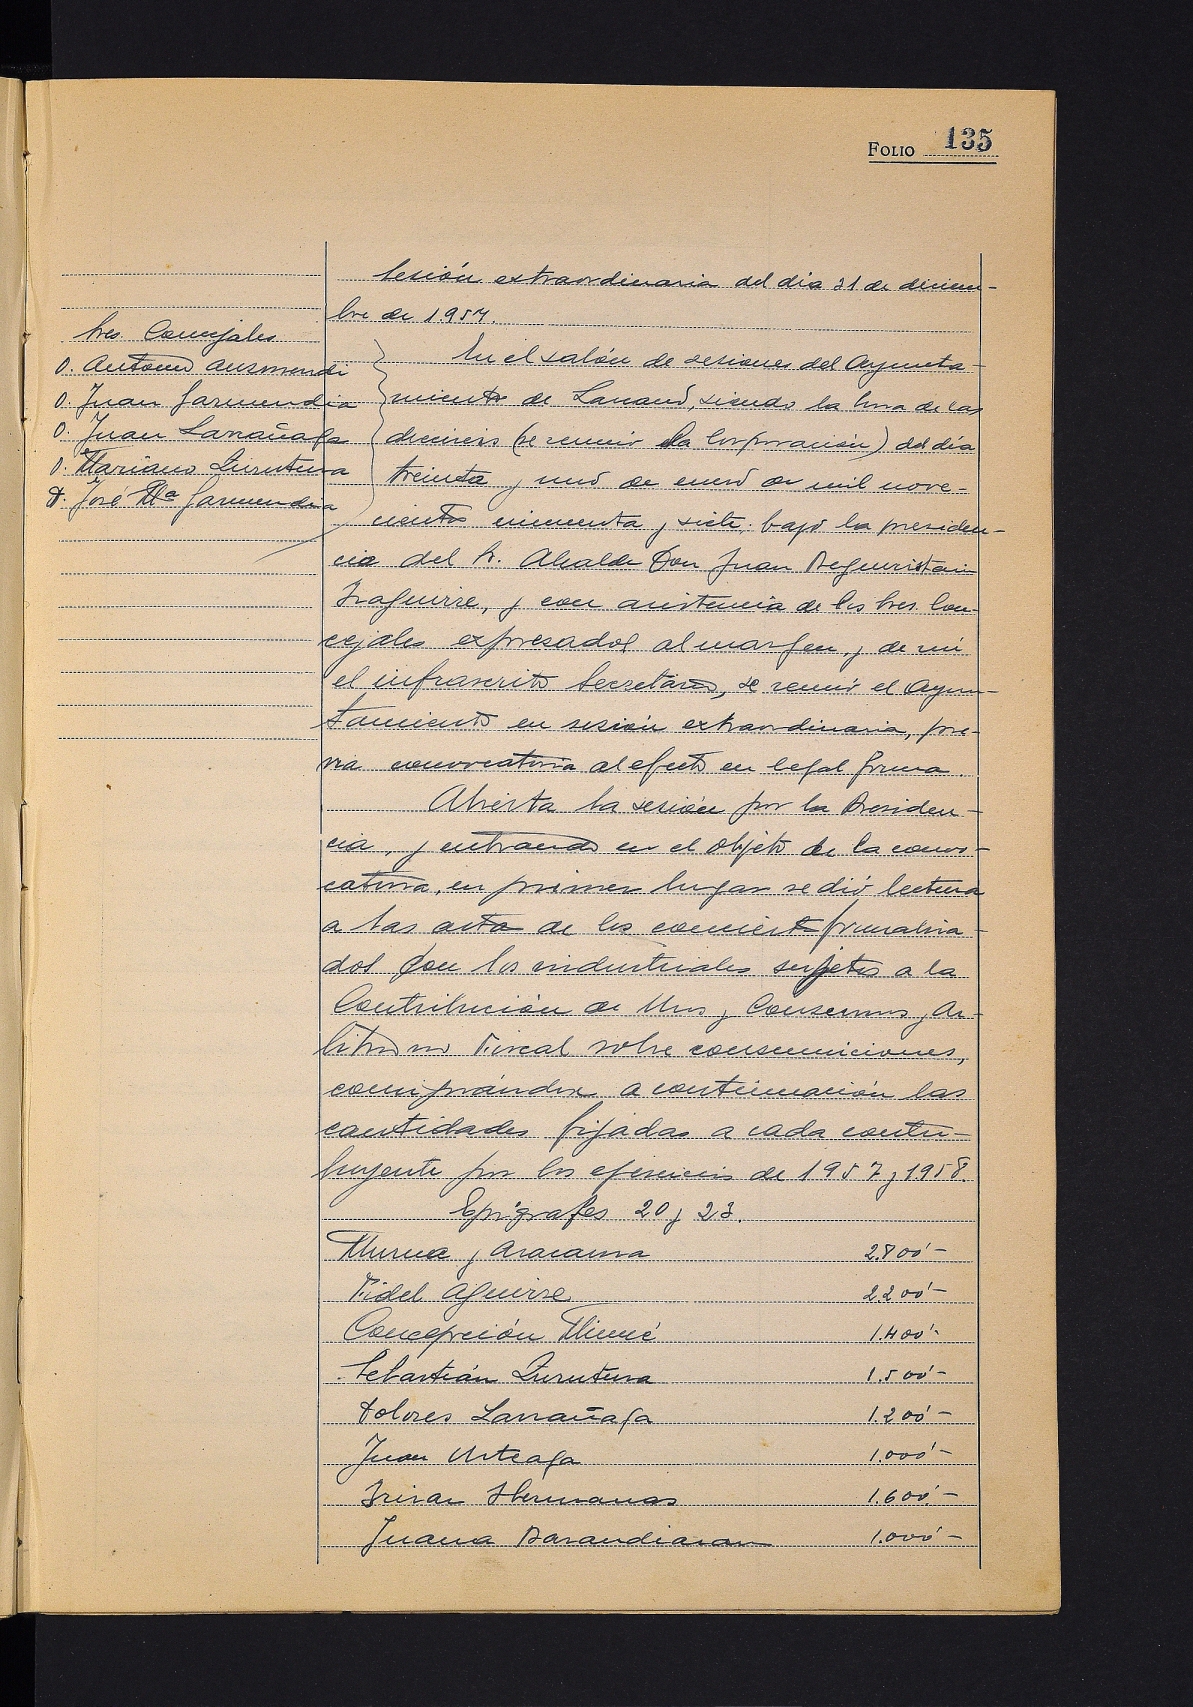 FOLIO 135
Sesión extraordinaria del día 31 de diciem-
bre de 1957.
Sres. Concejales
D. Antonio Auzmendi
D. Juan Garmendia
D. Juan Larrañaga
D. Mariano Zurutuza
D. José Mª Garmendia
En el salón de sesiones del Ayunta-
miento de Larraul, siendo la hora de las
dieciseis (se reunió la Corporación) del día
treinta y uno de enero de mil nove-
cientos cincuenta y siete, bajo la presiden-
cia del Sr. Alcalde Don Juan Beguiristain
Izaguirre, y con asistencia de los Sres. Con-
cejales expresados al margen, y de mi
el infrascrito Secretario, se reunió el Ayun-
tamiento en sesión extraordinaria, pre-
via convocatoria al efecto en legal forma.
Abierta la sesión por la Presiden-
cia, y entrando en el objeto de la convo-
catoria, en primer lugar se dió lectura
a las acta de los concierto formaliza-
dos con los industriales sujetos a la
Contribución de Usos y Consumos y Ar-
bitrio no Fiscal sobre consumiciones,
a continuación las
cantidades fijadas a cada contri-
buyente por los ejercicios de 1957 y 1958.
Epígrafes 20 y 23.
y Aracama 2.800'-
Fidel Aguirre 2.200'-
Concepción 1.400'-
Sebastián Zurutuza 1.500'-
Dolores Larrañaga 1.200'-
Juan Urteaga 1.000'-
Irizar Hermanos 1.600'-
Juana Barandiaran 1.000'-